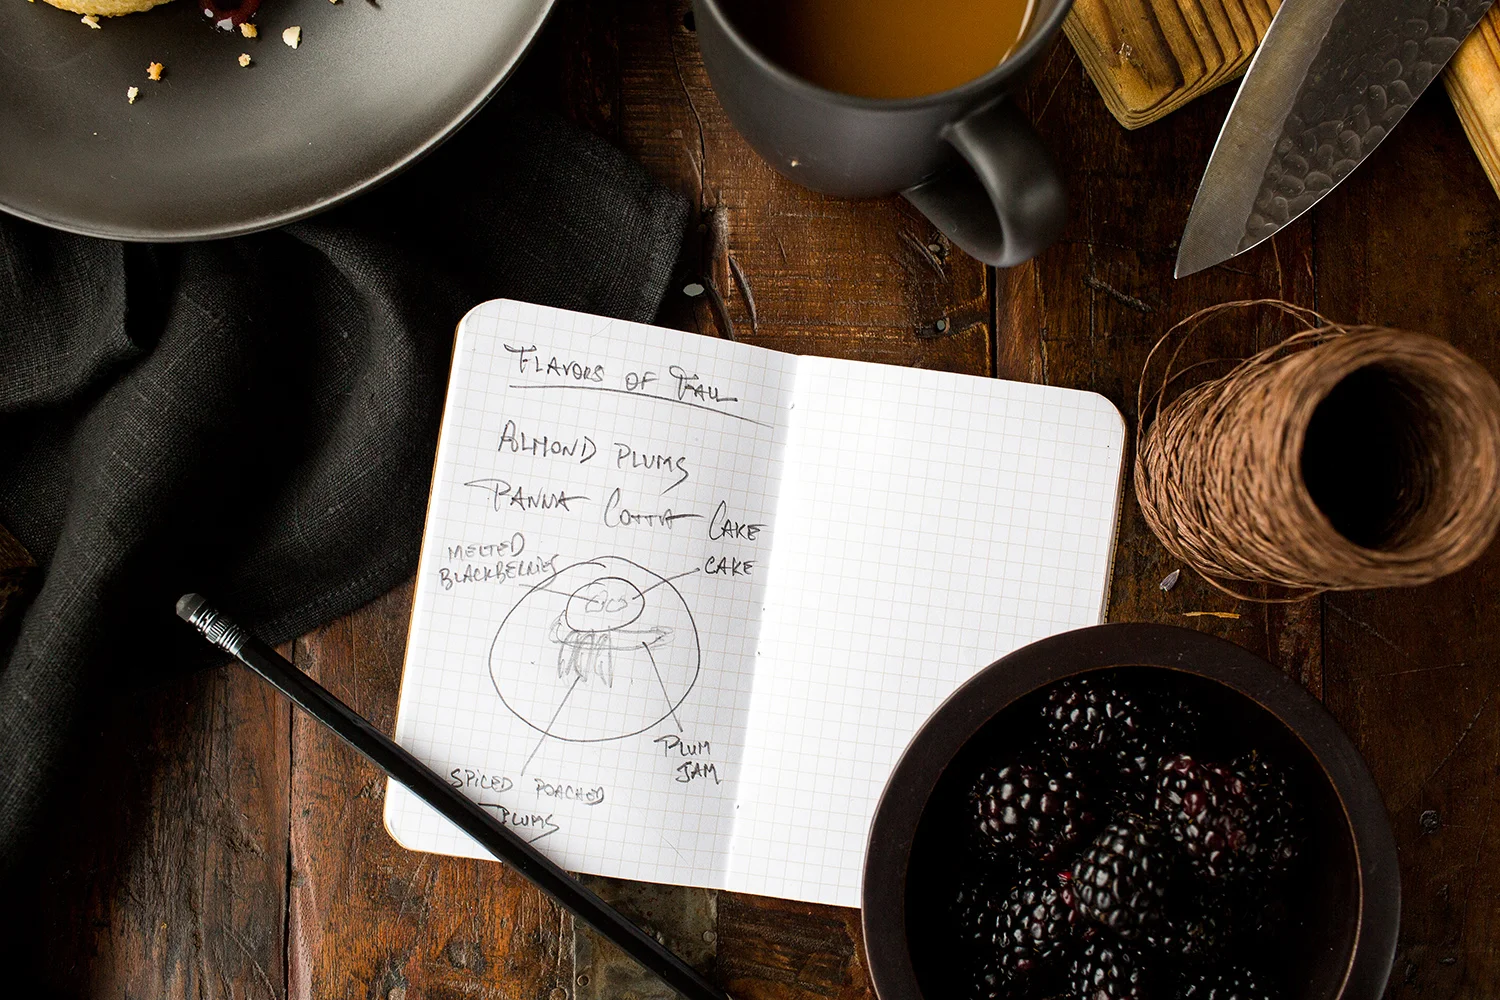 FLAVORS OF FALL
ALMOND PLUMS
PANNA COTTA CAKE
MELTED
BLACKBERRIES
CAKE
PLUM
JAM
SPICED POACHED
PLUMS